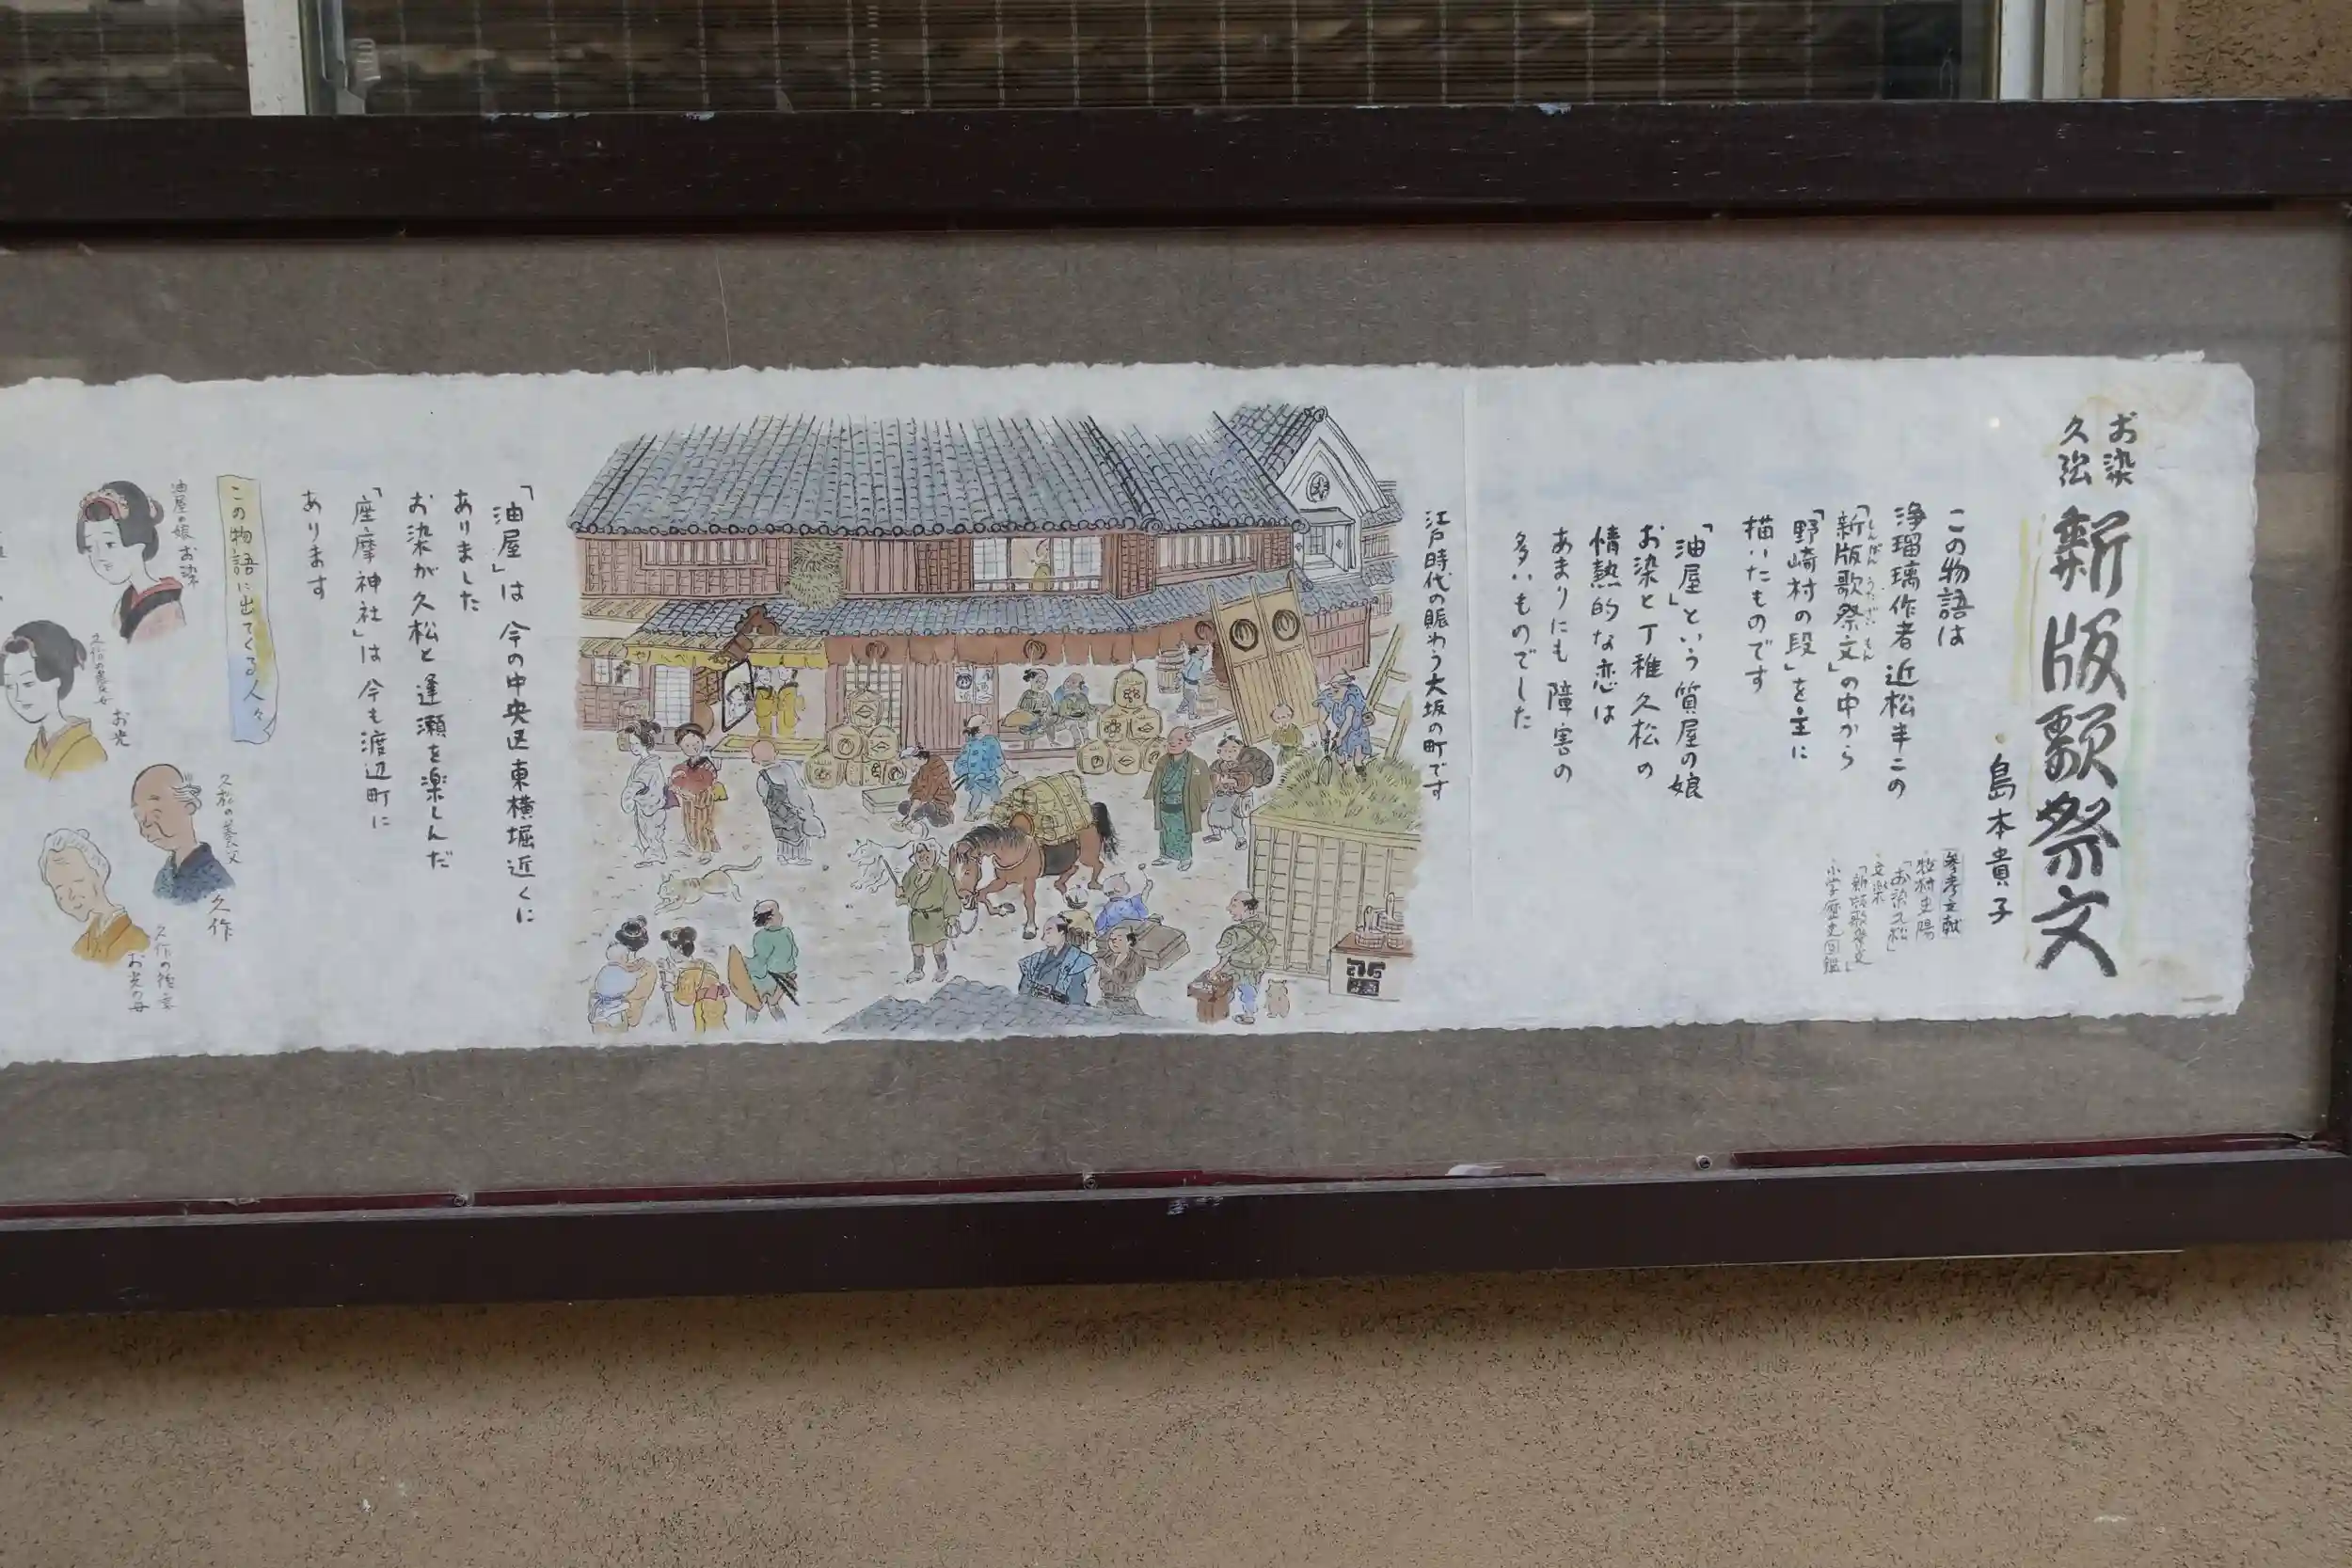 お染
久松
新版歌祭文
島本貴子
この物語は
浄瑠璃作者 近松半二の
「新版歌祭文」の中から
しんぱん うたざいもん
「野崎村の段」を主に
描いたものです
参考文献
牧村史陽
「お染久松」
文楽
「新版歌祭文」
小学歴史図鑑
「油屋」という質屋の娘
お染と丁稚久松の
情熱的な恋は
あまりにも障害の
多いものでした
江戸時代の賑わう大坂の町です
「油屋」は 今の中央区東横堀近くに
ありました
お染が久松と逢瀬を楽しんだ
「座摩神社」は 今も渡辺町に
あります
この物語に出てくる人々
油屋の娘 お染
久作の養女 お光
久松の養父 久作
久作の後妻
お光の母